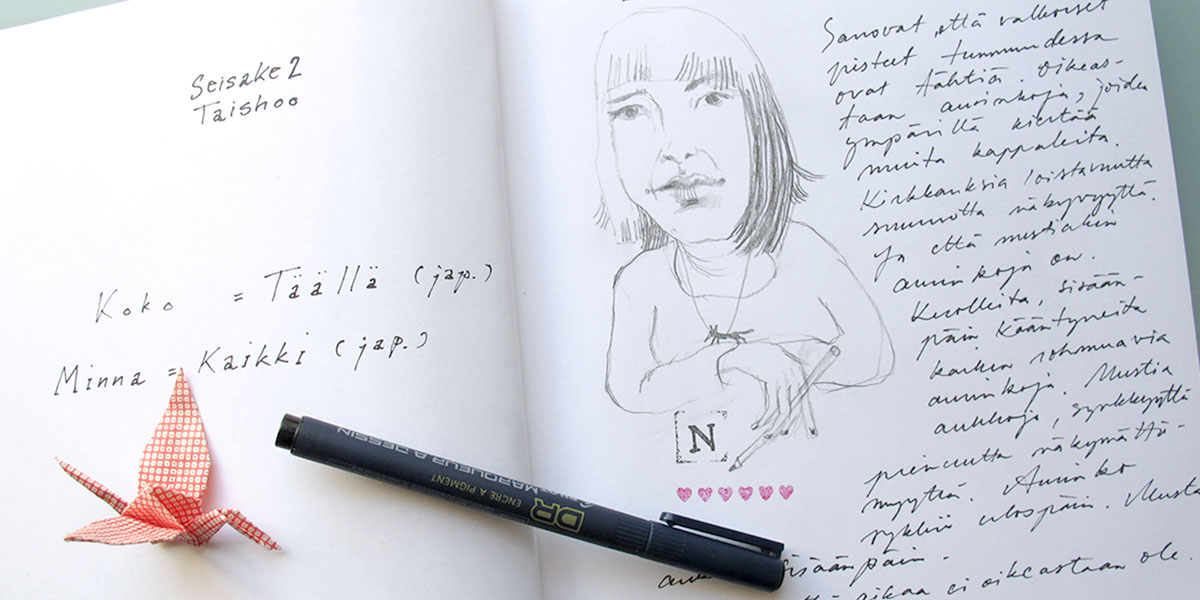 Seisake 2
Taishoo
Koko = Täällä (jap.)
Minna = Kaikki (jap.)
N
ENCRE A PIGMENT
DR
MARQUEUR A DESSIN
Sanovat, että valkoiset
pisteet tummuudessa
ovat tähtiä. Oikeas-
taan aurinkoja, joiden
ympärillä kiertää
muita kappaleita.
Kirkkauksia loistavuutta
suurrotta näkyvyyttä.
Ja että mustiakin
aurinkoja on.
Kuolleita, sisään-
päin kääntyneita
kaiken rohmuavia
aurinkoja. Mustia
aukkoja, synkkyyttä
pimeyttä näkymättö-
myyttä. Aurinko
sykkii ulospäin. Musta
sisäänpäin.
aikaa ei oikeastaan ole.